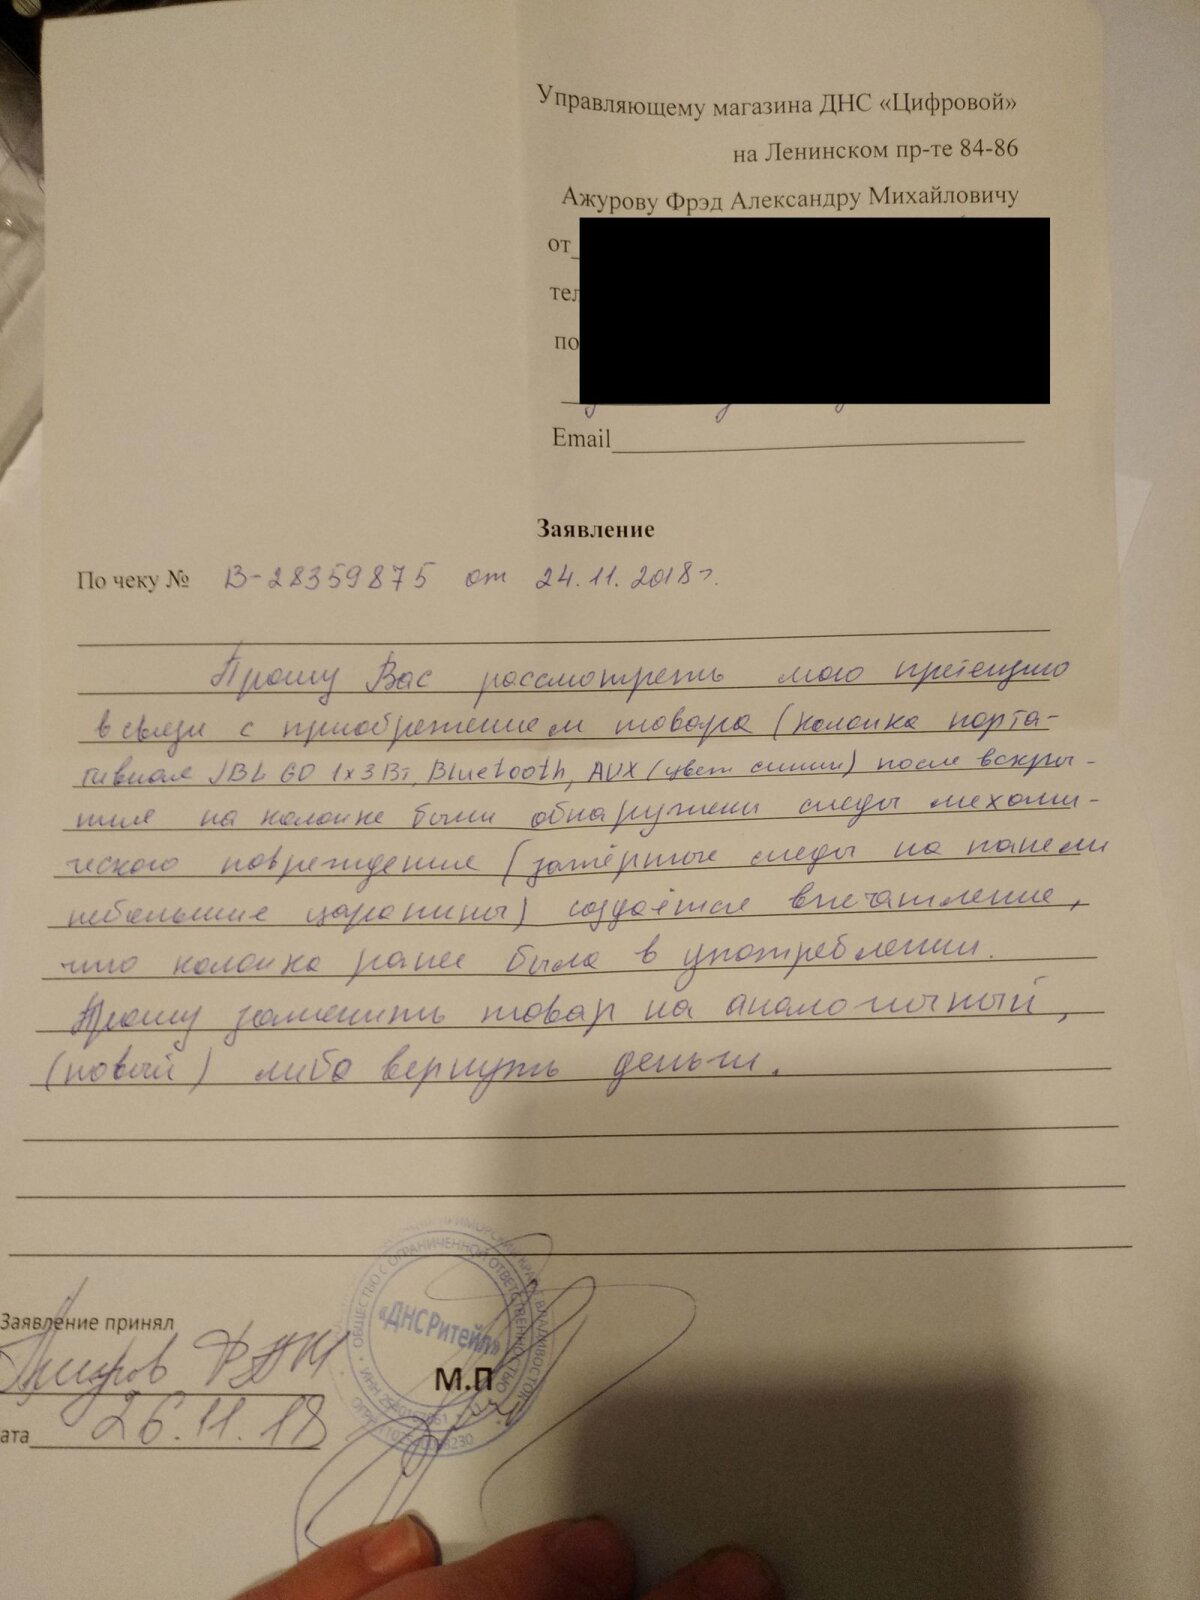 Управляющему магазина ДНС «Цифровой»
на Ленинском пр-те 84-86
Ажурову Фрэд Александру Михайловичу
от
тел
по
Email
Заявление
По чеку № В-28359875 от 24.11.2018г.
Прошу Вас рассмотреть мою претензию
в связи с приобретением товара (колонка порта-
тивная JBL GO 1x3Вт, Bluetooth, AUX (цвет синий) после вскры-
тия на колонке были обнаружены следы механи-
ческого повреждения (затёртые следы на панели
небольшие царапины) создаётся впечатление,
что колонка ранее была в употреблении.
Прошу заменить товар на аналогичный,
(новый) либо вернуть деньги.
Заявление принял
Ажуров ФАМ
ата 26.11.18
ПРИМОРСКИЙ КРАЙ Г. ВЛАДИВОСТОК
ОБЩЕСТВО С ОГРАНИЧЕННОЙ ОТВЕТСТВЕННОСТЬЮ
«ДНС Ритейл»
М.П
ИНН
ОГРН